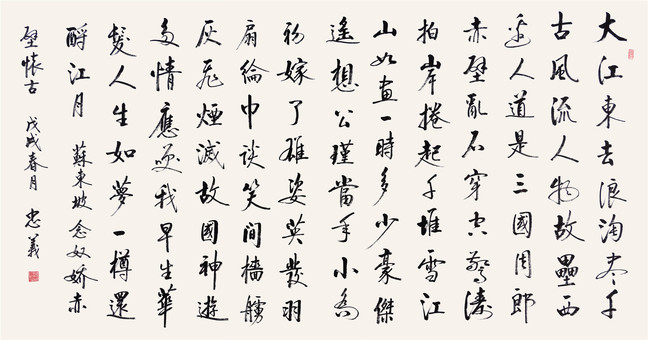 大江東去浪淘盡千
古風流人物故壘西
邊人道是三國周郎
赤壁亂石穿空驚濤
拍岸捲起千堆雪江
山如畫一時多少豪傑
遙想公瑾當年小喬
初嫁了雄姿英發羽
扇綸巾談笑間檣艣
灰飛煙滅故國神遊
多情應笑我早生華
髮人生如夢一樽還
酹江月 蘇東坡念奴嬌赤
壁懷古 戊戌春月 忠義